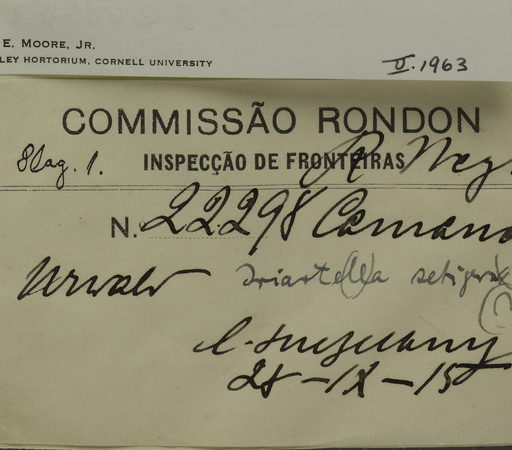 E. MOORE, JR.
LEY HORTORIUM, CORNELL UNIVERSITY
II.1963
COMMISSÃO RONDON
1. INSPECÇÃO DE FRONTEIRAS R. Neg.
N. 22298 Camano
Urwald Iriartella setigera
28-IX-15